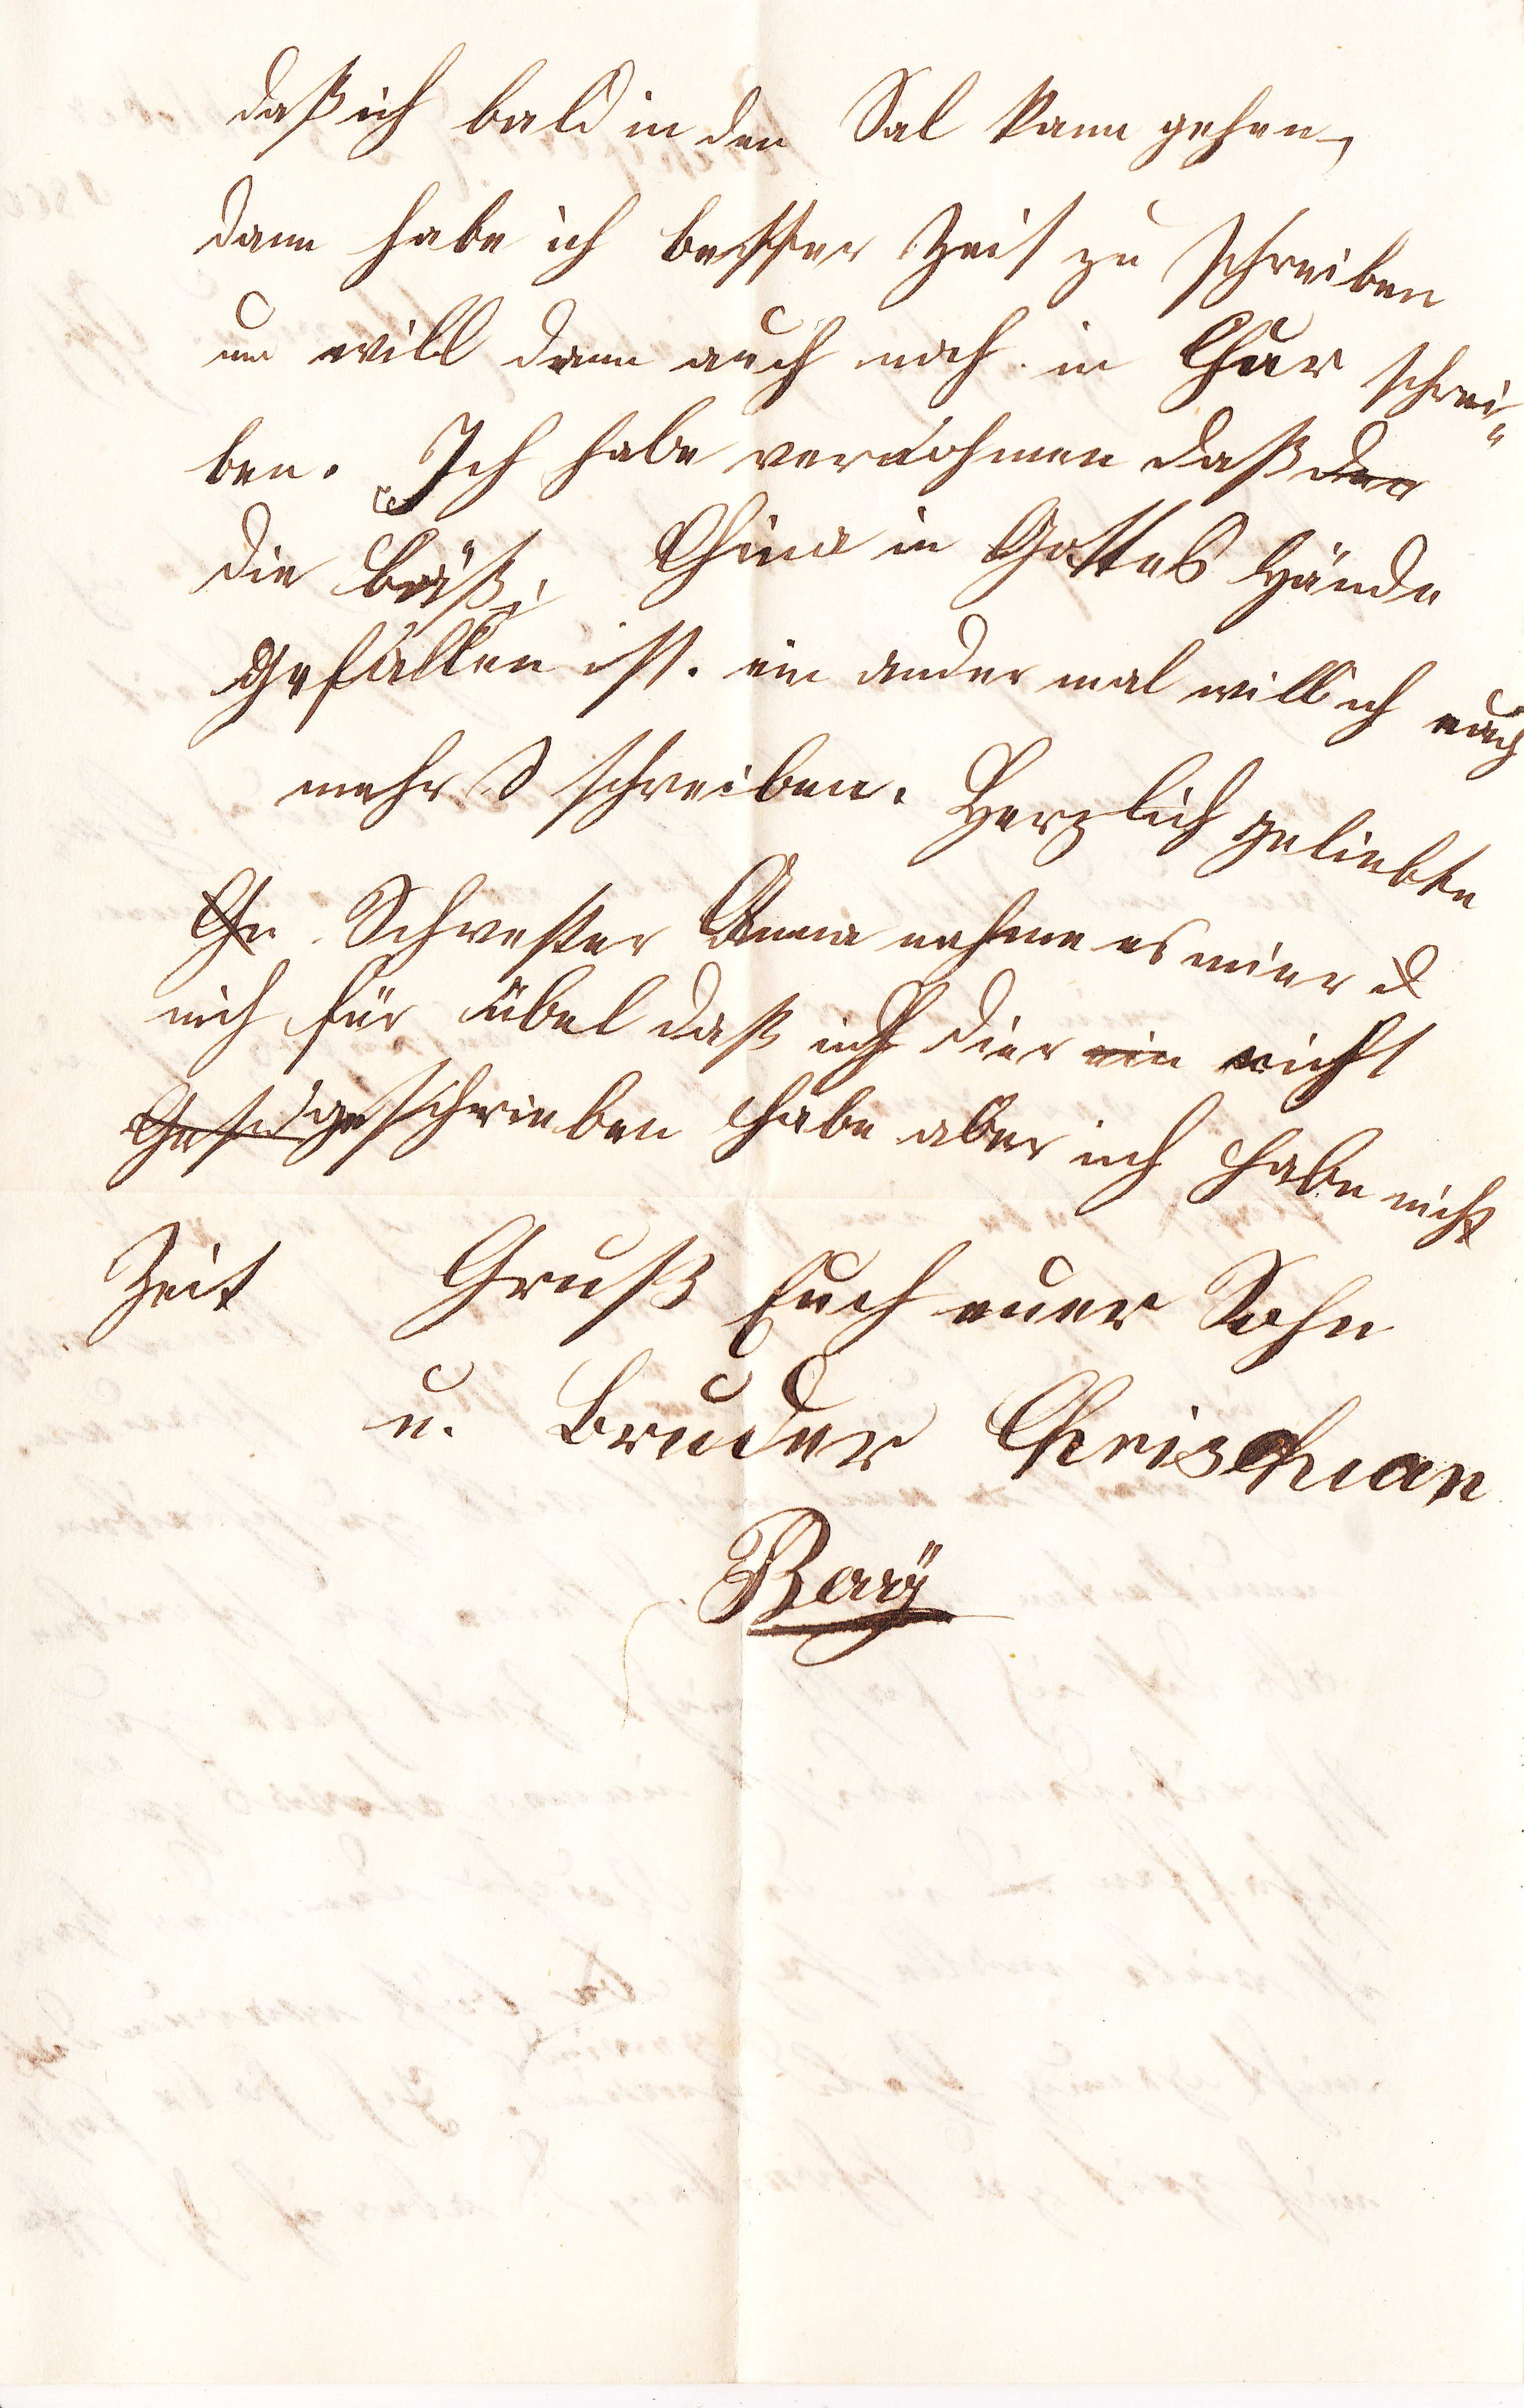 daß ich bald in den Sal kann gehen,
dann habe ich besser Zeit zu schreiben
un will dann auch noch in Chur schrei-
ben. Ich habe vernohmen daß der
die Bäßi China in Gottes Hände
gefallen ist. ein ander mal will ich euch
mehr schreiben. Herzlich geliebte
Schwester Anna nehme es mier
nich für übel daß ich dier ein nicht
geschrieben habe aber ich habe nicht
Zeit Gruß Euch euer Sohn
u. Bruder Chrischian